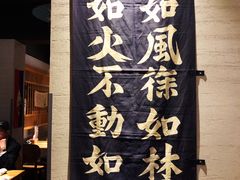 如風徐如林
如火不動如